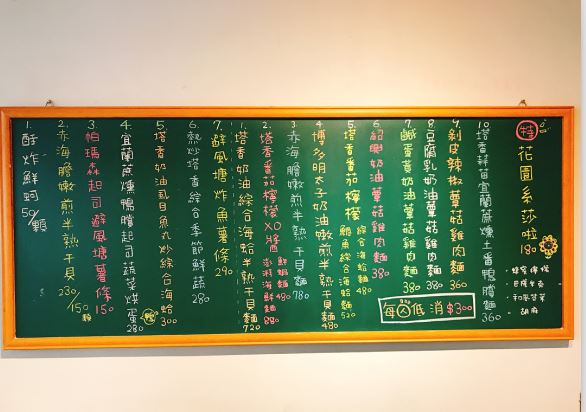 特 花園系莎啦 180
蜂蜜檸檬
巴薩米克
和風芥茉
胡麻
10. 塔香蒜苗宜蘭蔗燻土番鴨膾麵 360
9. 剝皮辣椒蕈菇雞肉麵 360
8. 豆腐乳奶油蕈菇雞肉麵 380
7. 鹹蛋黃奶油蕈菇雞肉麵 380
6. 紹興奶油蕈菇雞肉麵 380
5. 塔香番茄檸檬 鮑魚綜合海蛤麵 520
綜合海蛤麵 480
4. 博多明太子奶油嫩煎半熟干貝麵 480
3. 赤海膽嫩煎半熟干貝麵 780
2. 塔香番茄檸檬XO醬 鮮蝦麵 480
澎湃海鮮麵 880
1. 塔香奶油綜合海蛤半熟干貝麵 720
每人低消$300
7. 避風塘炸魚薯條 290
6. 熱炒塔香綜合季節鮮蔬 280
5. 塔香奶油虱目魚丸炒綜合海蛤 300
4. 宜蘭蔗燻鴨膾起司蔬菜烘蛋 280
3. 帕瑪森起司避風塘薯條 150
2. 赤海膽嫩煎半熟干貝 230/150顆
1. 酥炸鮮蚵 50/顆